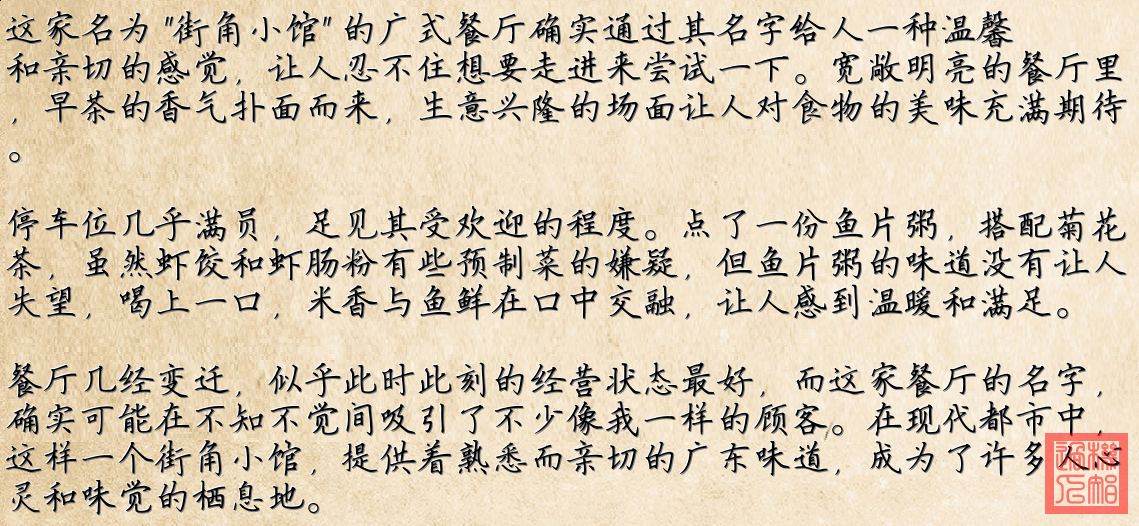 这家名为 "街角小馆" 的广式餐厅确实通过其名字给人一种温馨
和亲切的感觉，让人忍不住想要走进来尝试一下。宽敞明亮的餐厅里
，早茶的香气扑面而来，生意兴隆的场面让人对食物的美味充满期待
。
停车位几乎满员，足见其受欢迎的程度。点了一份鱼片粥，搭配菊花
茶，虽然虾饺和虾肠粉有些预制菜的嫌疑，但鱼片粥的味道没有让人
失望，喝上一口，米香与鱼鲜在口中交融，让人感到温暖和满足。
餐厅几经变迁，似乎此时此刻的经营状态最好，而这家餐厅的名字，
确实可能在不知不觉间吸引了不少像我一样的顾客。在现代都市中，
这样一个街角小馆，提供着熟悉而亲切的广东味道，成为了许多人心
灵和味觉的栖息地。